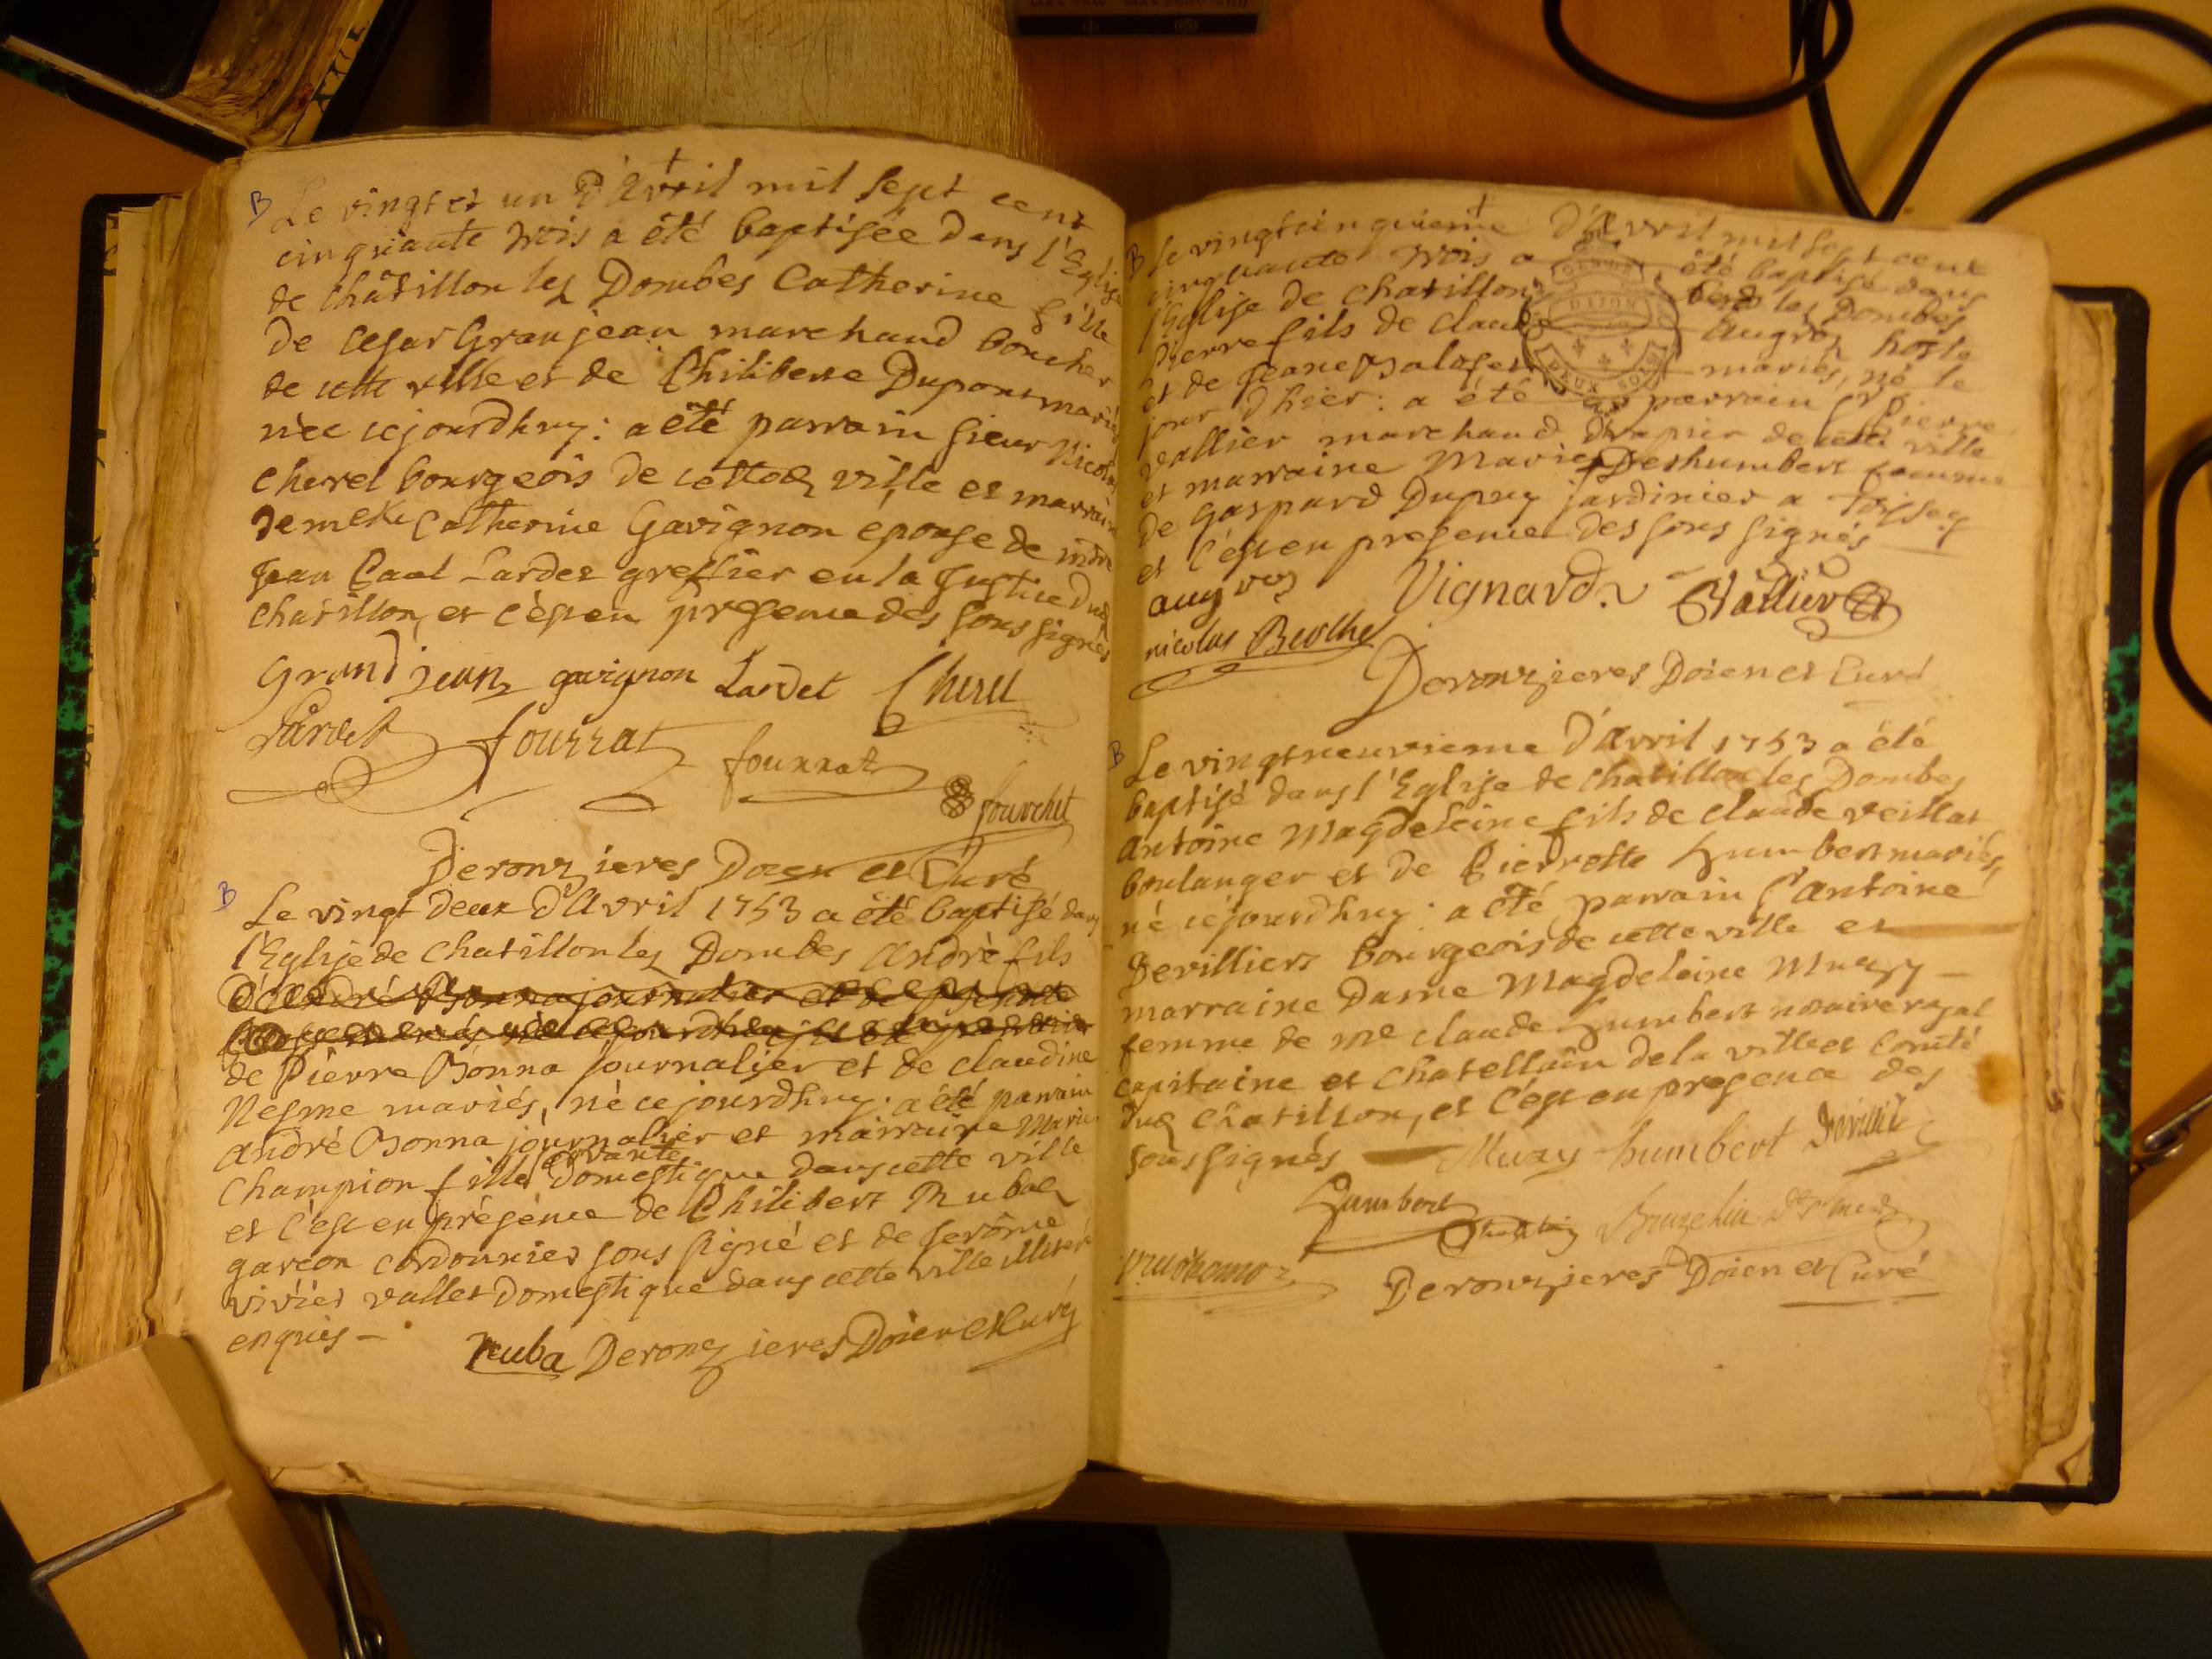 B Le vingt et un d'Avril mil sept cent
cinquante trois a été baptisée dans l'Eglise
de châtillon les Dombes Catherine fille
de Cesar Granjean marchand boucher
de cette ville et de Philiberte Dupont mariés
née cejourdhuy : a été parrain sieur Nicolas
Cherel bourgeois de cette ville et marraine
demelle Catherine Gavignon épouse de
Jean Paul Lardet greffier en la Justice dud
châtillon, et c'est en presence des soussignés
Grandjean gavignon Lardet Cherel
Lardet fourrat fournat
fourchet
Deronzieres Doien et Curé
B Le vingt deux d'Avril 1753 a été baptisé dans
l'Eglise de Chatillon les Dombes André fils
de Pierre Bonna journalier et de claudine
Nesme mariés, né cejourdhuy : a été parrain
André Bonna journalier et marraine Marie
servante
Champion fille domestique dans cette ville
et c'est en présence de Philibert Ruba
garçon cordonnier sous signé et de Jerôme
vivier vallet domestique dans cette ville illiteré
enquis —
Ruba Deronzieres Doien et Curé
B Le vingtcinquieme d'Avril mil sept cent
cinquante trois a été baptisé dans
l'Eglise de Chatillon les Dombes
Pierre fils de claude Augros hoste
et de Jeane mariés, né le
jour d'hier : a été parrain sr Pierre
vallier marchand drapier de cette ville
et marraine Marie Deshumbert femme
de Gaspard Dupuy jardinier a Toissey
et c'est en presence des sous signés
augros Vignard Vallier
nicolas Berthet
Deronzieres Doien et Curé
B Le vingtneuvieme d'Avril 1753 a été
baptisé dans l'Eglise de chatillon les Dombes
Antoine Magdeleine fils de claude veillat
boulanger et de Pierrette humbert mariés,
né cejourdhuy : a été parrain sr antoine
Devilliers bourgeois de cette ville et
marraine Dame Magdeleine Muzy —
femme de me claude humbert notaire royal
capitaine et chatellain de la ville et Comté
dud Chatillon, et c'est en presence des
sous signés — Muzy humbert
humbert
Deronzieres Doien et Curé